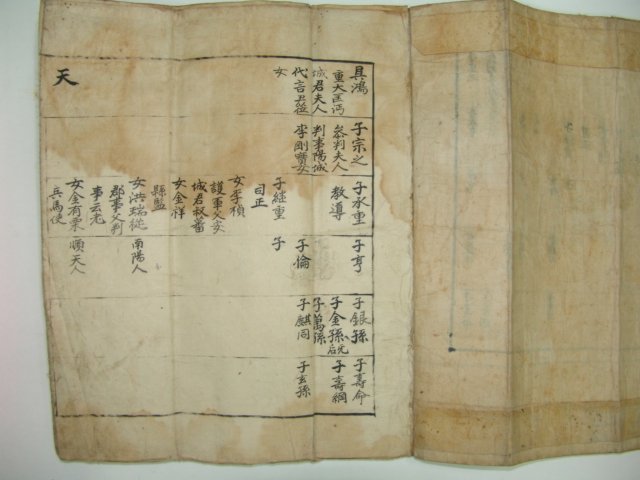 具鴻
重大匡沔
城君夫人
代言尹莅
女
天
子宗之
叅判夫人
判事陽城
李剛寶女
子承重
教導
子継重
司正
女李禎
護軍父安
城君叔蕃
女金祥
縣監
女洪瑞從
郡事父判
事云老
女金有栗
兵馬使
南陽人
順天人
子亨
子倫
子
子銀孫
子金孫
子萬孫
子麒同
子壽命
子壽綱
子玄孫